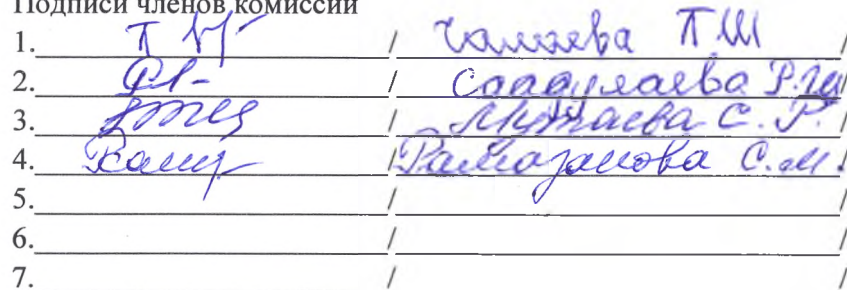 Подписи членов комиссии
1. / Чамаева П Ш /
2. / Саадулаева Р.Ш /
3. / Мутаева С. Р. /
4. / Рамазанова С.М. /
5. / /
6. / /
7. / /